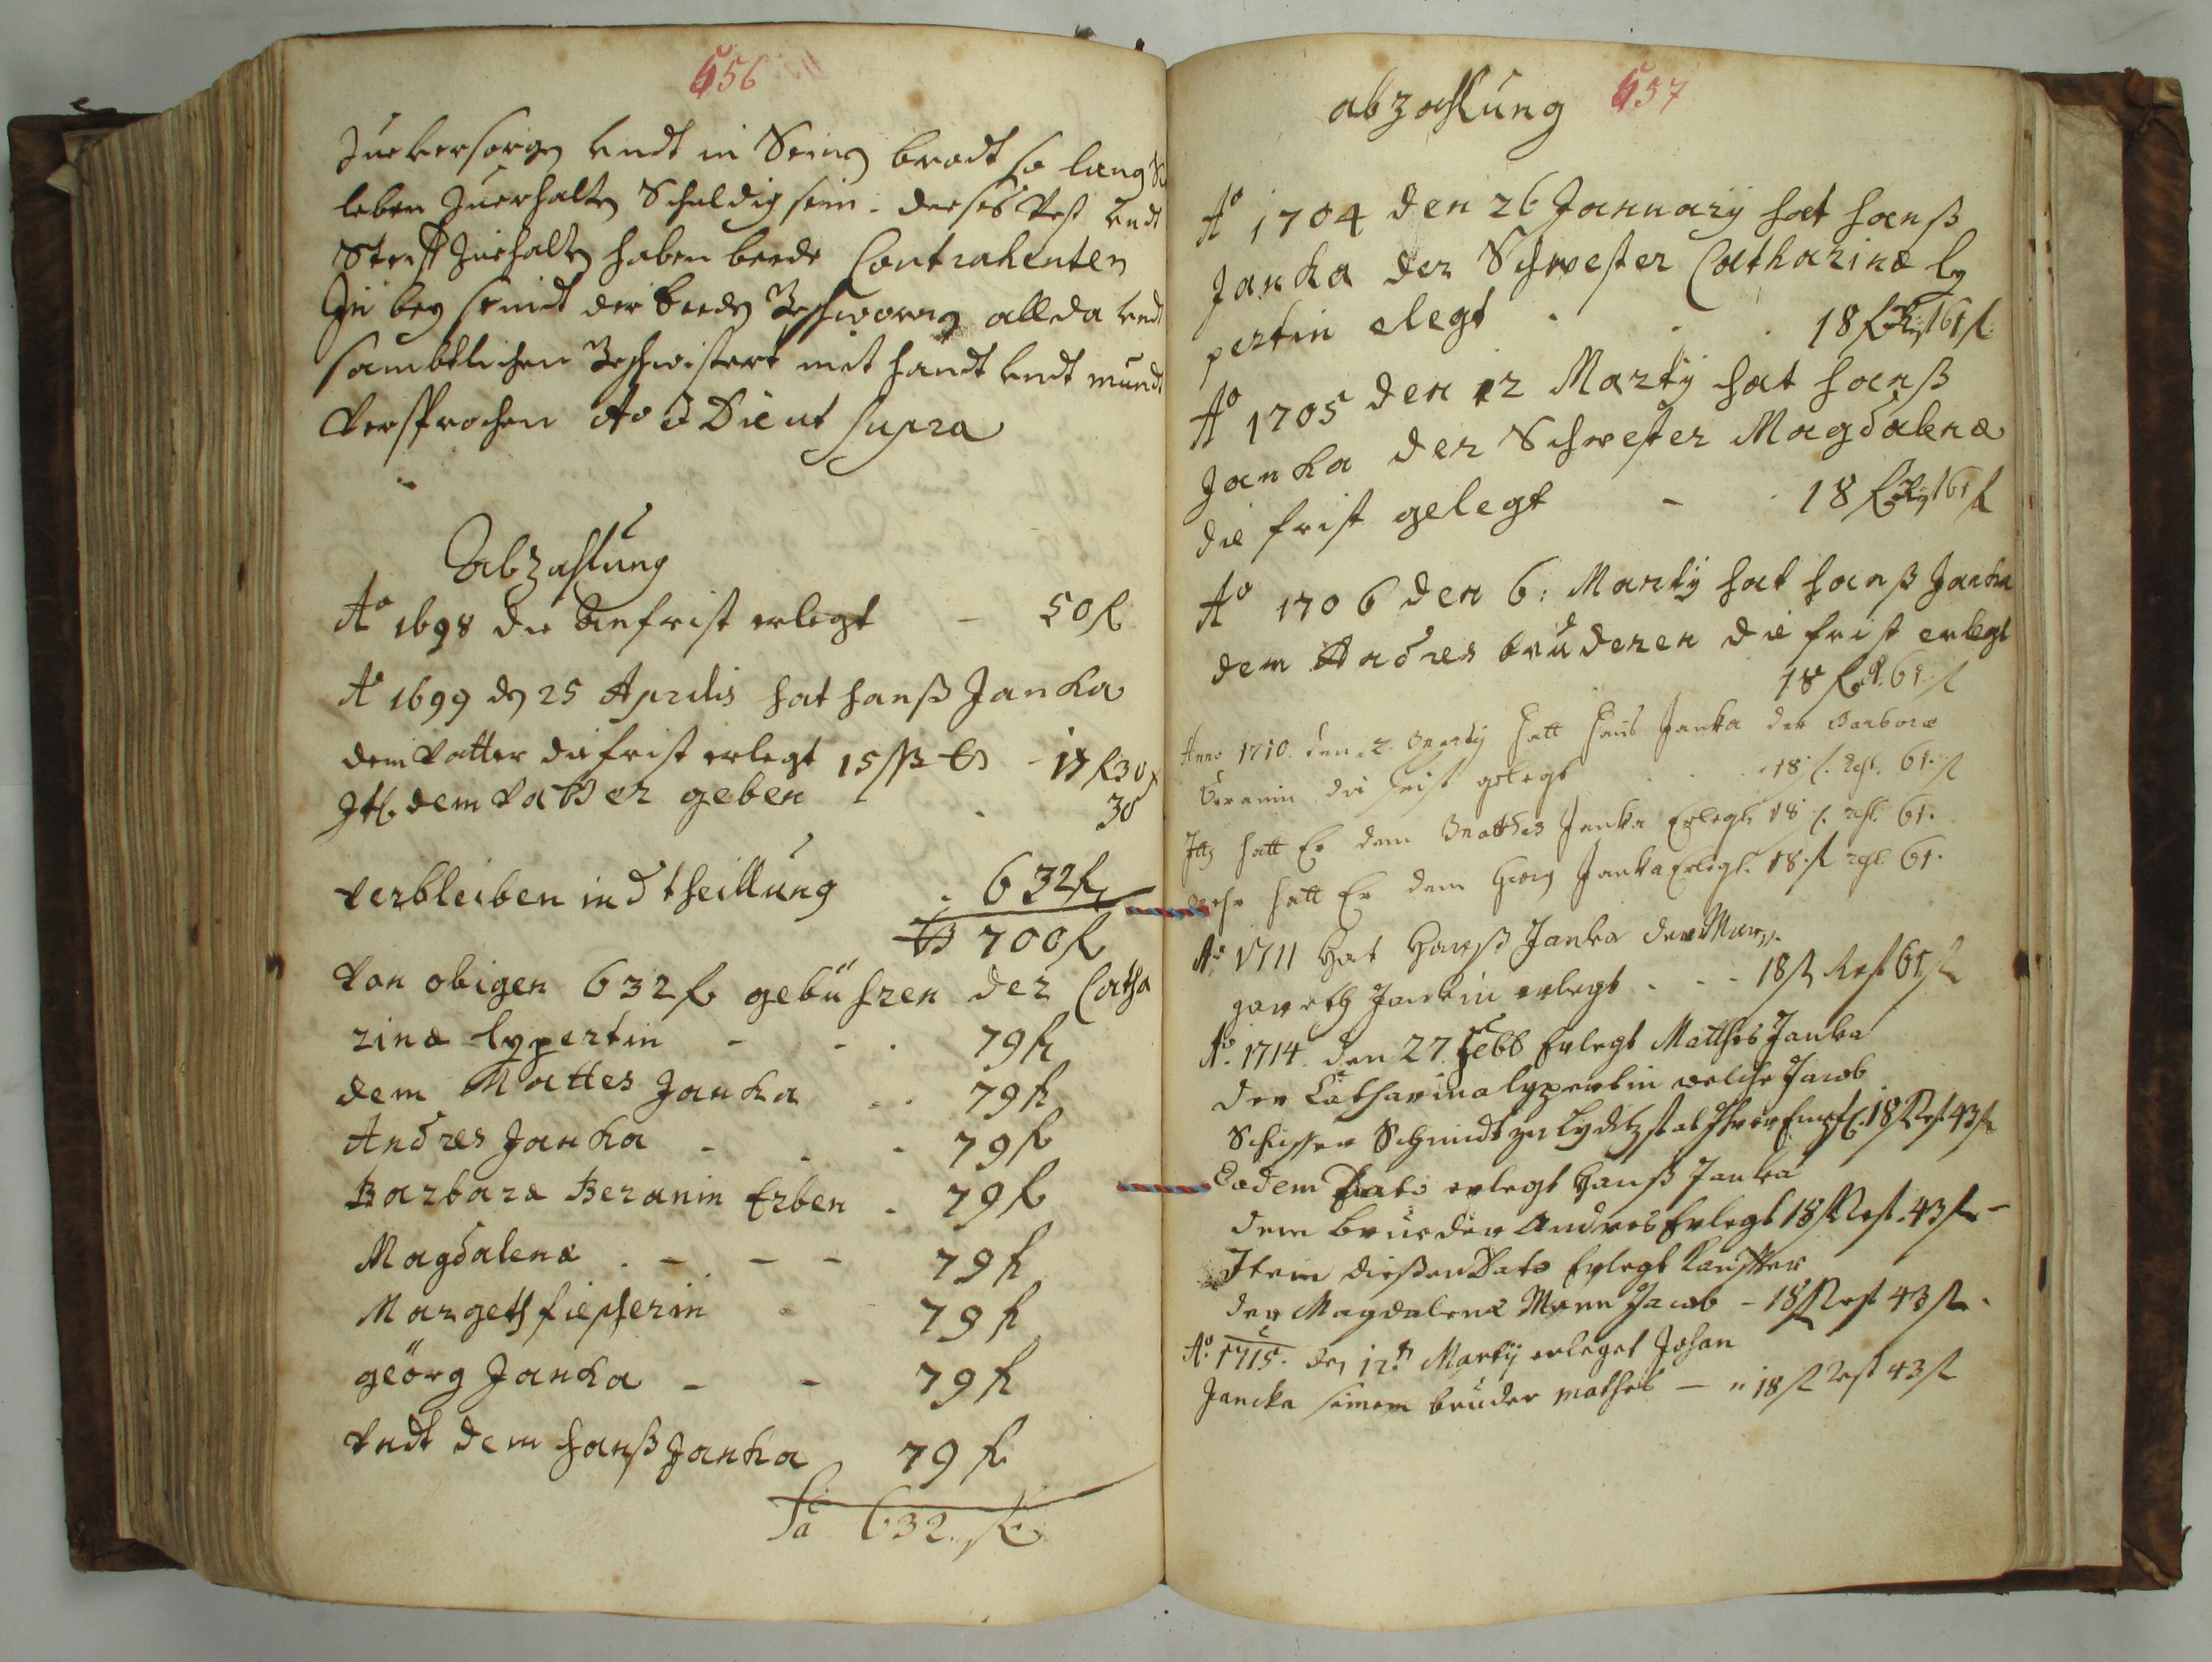 656
Zue versorgen undt in Seinen brodt so lang Sie
leben Zuerhalten Schuldig sein. dieses Vest undt
Steiff Zuehalten haben beede Contrahenten
In bey seindt der beeden Geschwornen allda undt
sambtlichen Geschwistert mit handt undt mundt
Versprochen Ao & Die ut supra
Abzahlung
Ao 1698 die Anfrist erlegt - 50 fl
Ao 1699 den 25 Aprilis hat hanß Janka
dem Vatter die frist erlegt 15 ß tt - 17 fl 30 x
Itl. dem Vatter geben 30
Verbleiben in d theillung . 632 fl
700 fl
Von obigen 632 fl gebühren der Catha
rina lypertin - - . 79 fl
dem Mattes Janka . . 79 fl
Andres Janka - . - 79 fl
Barbara Beranin Erben . 79 fl
Magdalena . - - - 79 fl
Margeth fiepherin - 79 fl
geörg Janka - - 79 fl
Vndt dem hanß Janka 79 fl
Sa 632. fl
abzahlung 657
Ao 1704 den 26 January hat hanß
Janka der Schwester Catharina ly
pertin elegt . . . 18 fl Rest 61 fl
Ao 1705 den 12 Marty hat hanß
Janka der Schwester Magdalena
die frist gelegt - . 18 fl Rest 61 fl
Ao 1706 den 6: Marty hat hanß Janka
dem Andres bruderen die frist erlegt
18 fl R. 61. fl
Anno 1710. den 2. Marty hatt Hans Janka der Barbora
Beranin die frist gelegt . . . 18 fl. Rest. 61. fl
Ittem hatt Er dem Matthes Janka Erlegt 18 fl. rest. 61.
mehr hatt Er dem Georg Janka Erlegt. 18. fl rest. 61.
Ao 1711 Hat Hanß Janka der Mar
gareth Jankin erlegt . . . 18 fl Rest 61 fl
Ao. 1714. den 27. Febb Erlegt Matthes Janka
der Catharina lypertin welche Jacob
Schisser Schmidt zu Empf. 18 Rest 43 fl
Eodem Dato erlegt Hanß Janka
dem bruder Andres Erlegt 18 fl Rest. 43 fl -
Item dießen Dato Erlegt Kauffer
der Magdalena Mann Jacob - 18 fl Rest 43 fl.
Ao. 1715. den 12ten Marty erleget Johan
Jancka seinem bruder mathes — " 18 fl Rest 43 fl